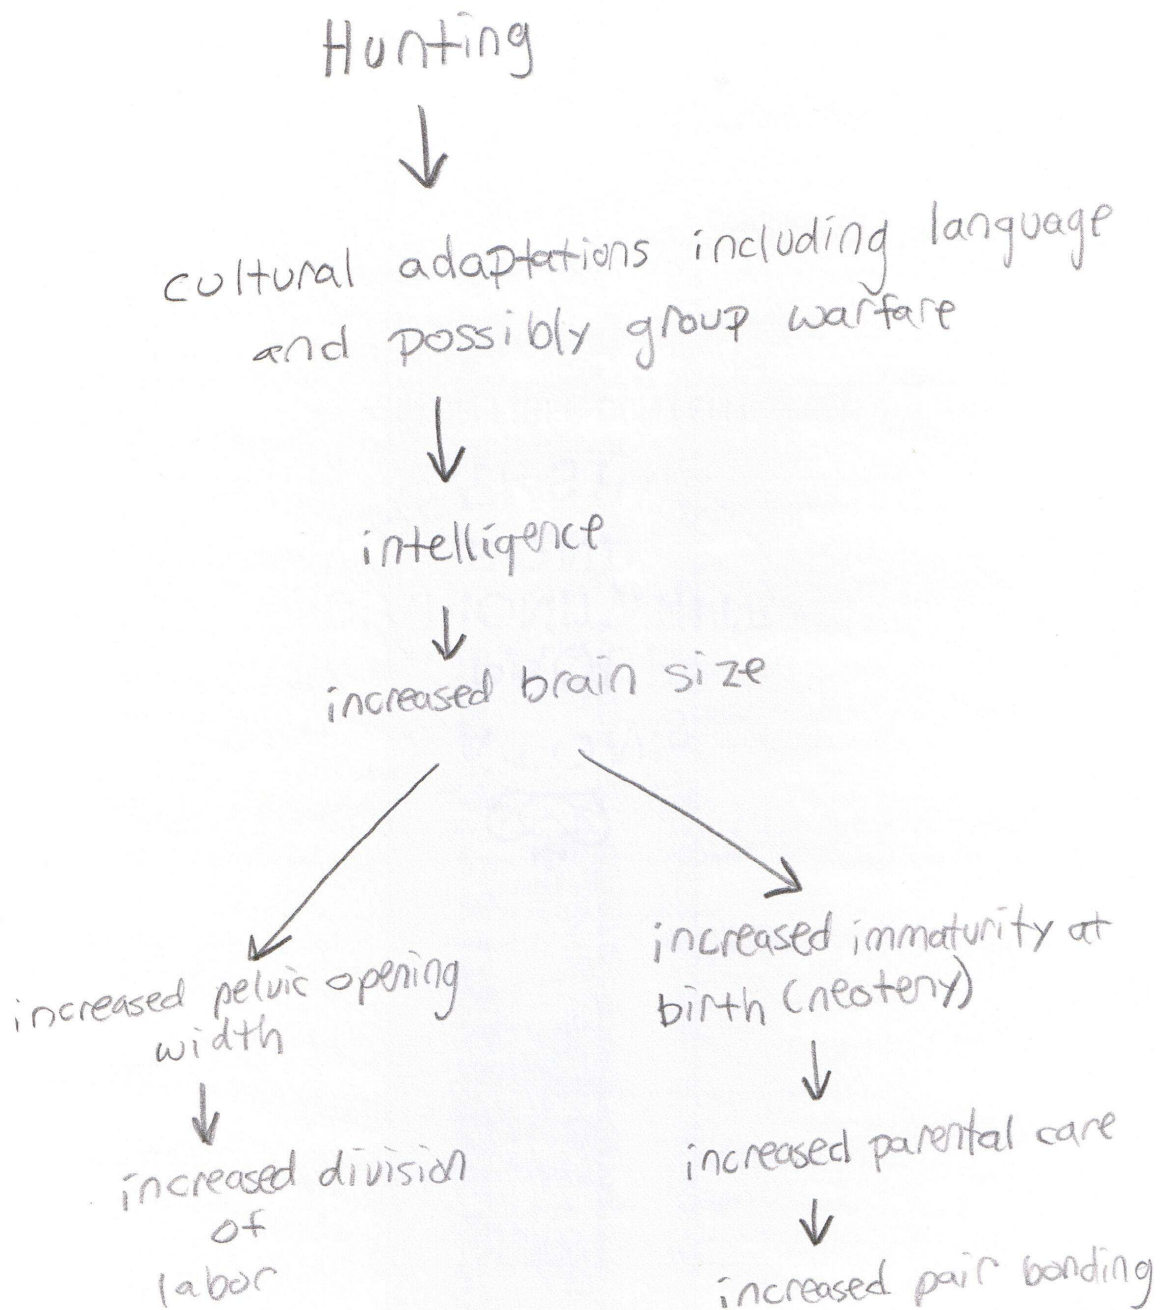 Hunting
cultural adaptations including language
and possibly group warfare
intelligence
increased brain size
increased pelvic opening
width
increased division
of
labor
increased immaturity at
birth (neoteny)
increased parental care
increased pair bonding